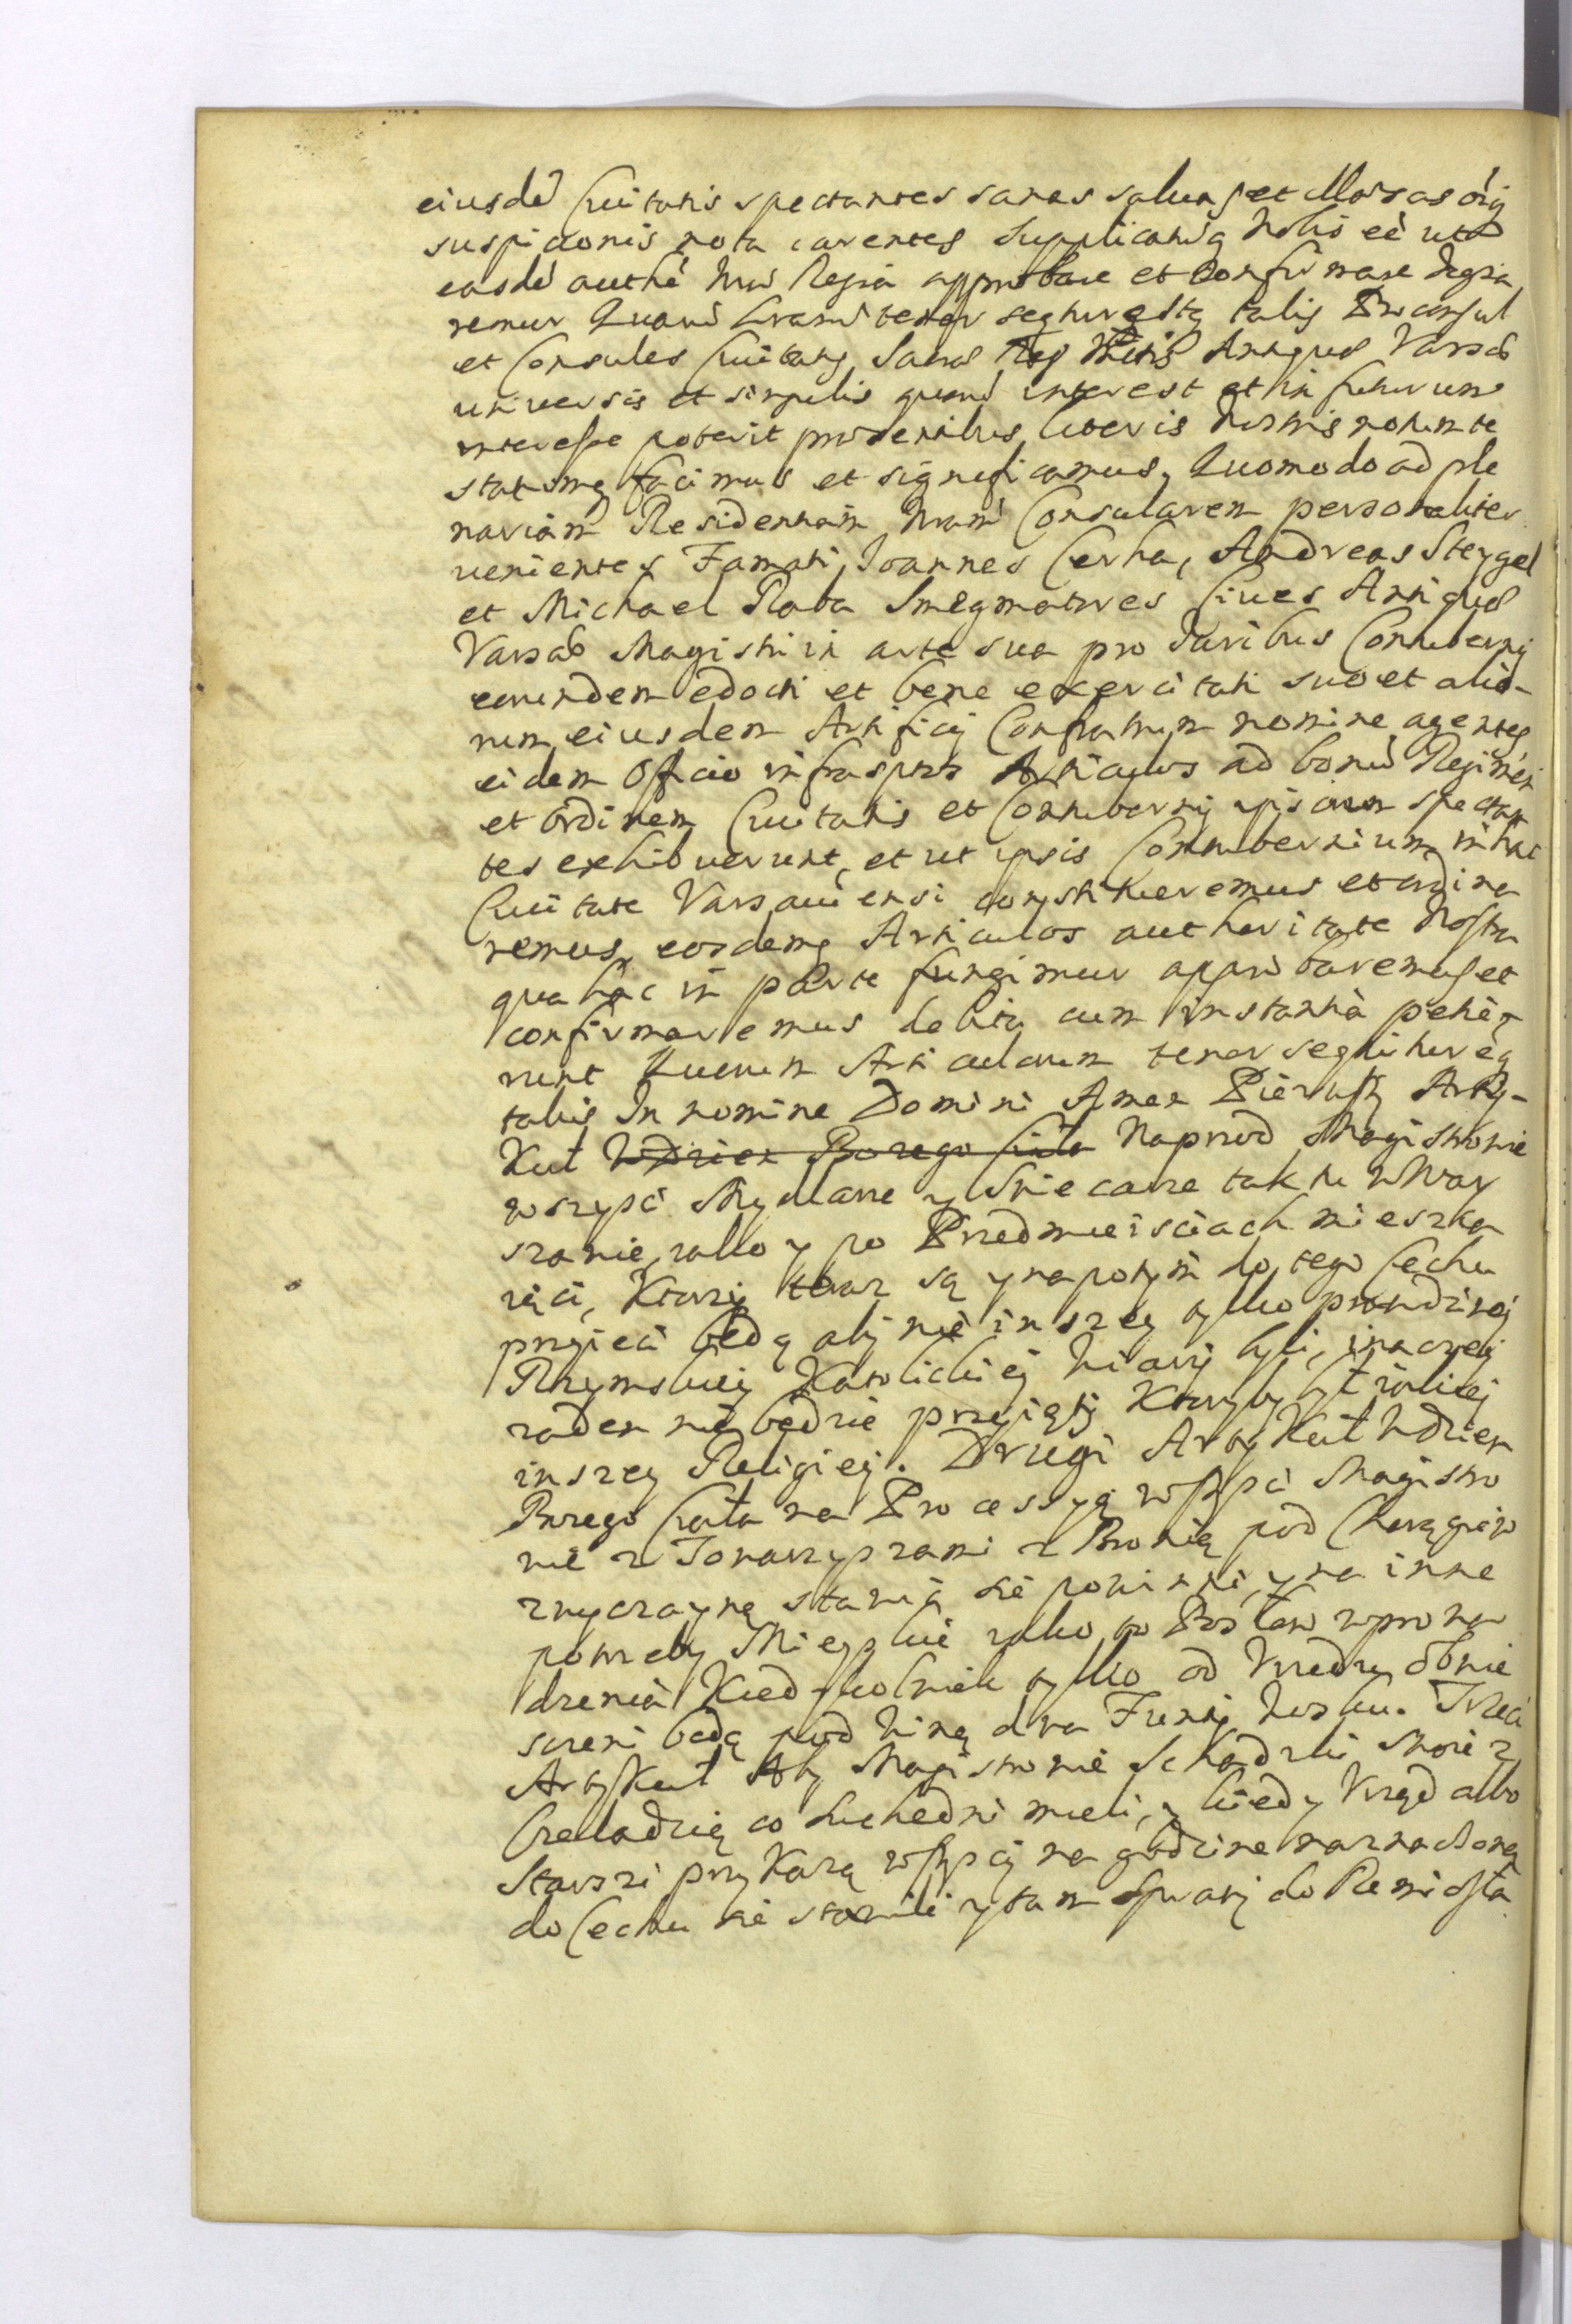 eiusdē Ciuitatis spectantes sanas saluas et illaesas oīq
suspicionis nota carentes Supplicatūq Nobis eē utd
easdē authē nrā Regia approbare et Confirmare digna
remur Quarū Lrarū tenor sequitur estq talis Proconsul
et Consules Ciuitatis Sacrae Reg Mttis Antiquae Varsae
uniuersis et singulis quorū interest et in futurum
interesse poterit praesentibus literis nostris notum te
statumq facimus et significamus, Quomodo ad ple
nariam Residentiam nram Consularem personaliter
uenientes Famati, Joannes Cerha, Andreas Steygel
et Michael Raba Smegmatores Ciues Antiquae
Varsae Magistri in arte sua pro Juribus Contubernij
eorundem edocti et bene exercitati suo et alio-
rum eiusdem Artificij Confratrum nomine agentes
eidem Officio infrascptos Articulos ad bonū Regimen
et ordinem Ciuitatis et Contubernij ipsorum spectan
tes exhibuerunt, et ut ipsis Contubernium in hac
Ciuitate Varsauiensi constitueremus et ordina
remus, eosdemq Articulos authoritate Nostra
qua hac in parte fungimur approbaremus et
confirmaremus debita cum instantia petie-
runt Quorum Articulorum tenor sequitur eq
talis In nomine Domini Amen Pierwszy Arty-
kuł Wdzien Bozego Ciała Naprzod Magistrowie
wszyscy Mydlarze y Swiecarze tak tu w War
szawie, jako y po Przedmieisciach mieszka
iący, Ktorzy teraz są y napotym do tego Cechu
przyięci będą aby nie inszey tylko prawdziwey
Rzymskiey Katolickiey Wiary byli, inaczey
zaden nie będzie przyięty Ktoryby był iakiey
inszey Religiey. Drugi Artykuł Wdzien
Bozego Ciała na Processyą wszyscy Magistro
wie z Towarzyszami z Bronią pod Chorągiew
zwyczayną stawic się powinni, y na inne
potrzeby Mieyskie jako to Posłow wprowa
dzenia Kiedykolwiek tylko od Vrzędu obwie
szczeni będą pod winą dwa Funty wosku. Trzeci
Artykuł Aby Magistrowie Schadzki swoie z
Czeladzią co Suchedni mieli, y kiedy Vrząd albo
Starszi przykażą wszyscy na godzine naznaczoną
do Cechu się stawili y tam Sprawy do Remiosła